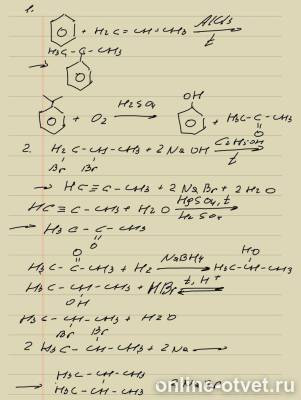 1.
+ H₂C=CH-CH₃ AlCl₃ t
H₃C-C-CH₃
→
+ O₂ H₂SO₄ OH + H₃C-C-CH₃ O
2. H₂C-CH-CH₃ + 2NaOH C₂H₅OH t
Br Br
→ HC≡C-CH₃ + 2NaBr + 2H₂O
HC≡C-CH₃ + H₂O HgSO₄, t H₂SO₄
→ H₃C-C-CH₃
O
O HO
H₃C-C-CH₃ + H₂ NaBH₄ H₃C-CH-CH₃
H₃C-CH-CH₃ + HBr t, H⁺
OH
H₃C-CH-CH₃ + H₂O
Br Br
2 H₃C-CH-CH₃ + 2Na →
H₃C-CH-CH₃
→ H₃C-CH-CH₃
online-otvet.ru